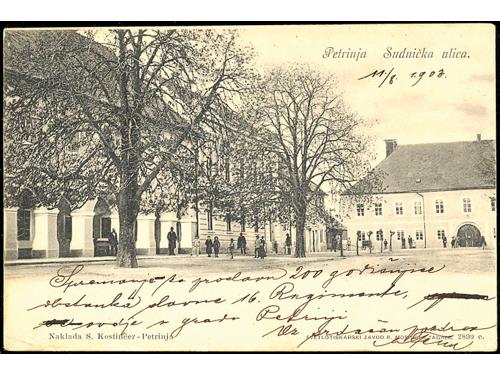 Petrinja Sudnička ulica.
11/8 1903.
Spremanje za proslavu 200 godišnjee
obstanka slavne 16. Regimente,
ovdje u gradu Petrinji
Uz srdačan pozdrav
Naklada S. Kostinčer - Petrinja
SVJETLOTISKARSKI ZAVOD R. MOSINGER, ZAGREB. 2899 c.